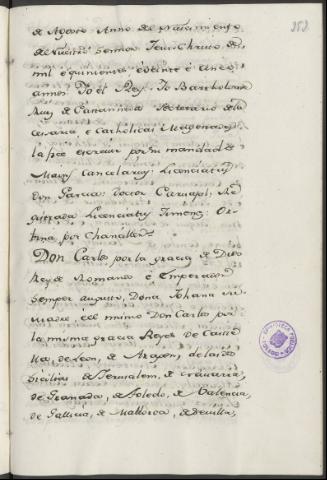 de Agosto Anno del Nacimiento
de Nuestro Senor Jesu Christo de
mil e quinientos e veinte e cinco
annos. Yo el Rey. Yo Bartholome
Ruiz de Castanieda Secretario de la
Cesarea e Catholicas Magestades
la fice escrivir por su mandado
Licenciatus
Don Garcia Doctor Carvajal, Re
gistrada Licenciatus Ximenez. Or
bina por Chanciller
Don Carlos por la gracia de Dios
Rey de Romanos e Emperador
semper augusto, Dona Johana su
madre, e el mismo Don Carlos por
la misma gracia Reyes de Casti
lla, de Leon, de Aragon, de las dos
Sicilias, de Jerusalem, de Navarra,
de Granada, de Toledo, de Valencia,
de Gallicia, de Mallorca, de Sevilla,